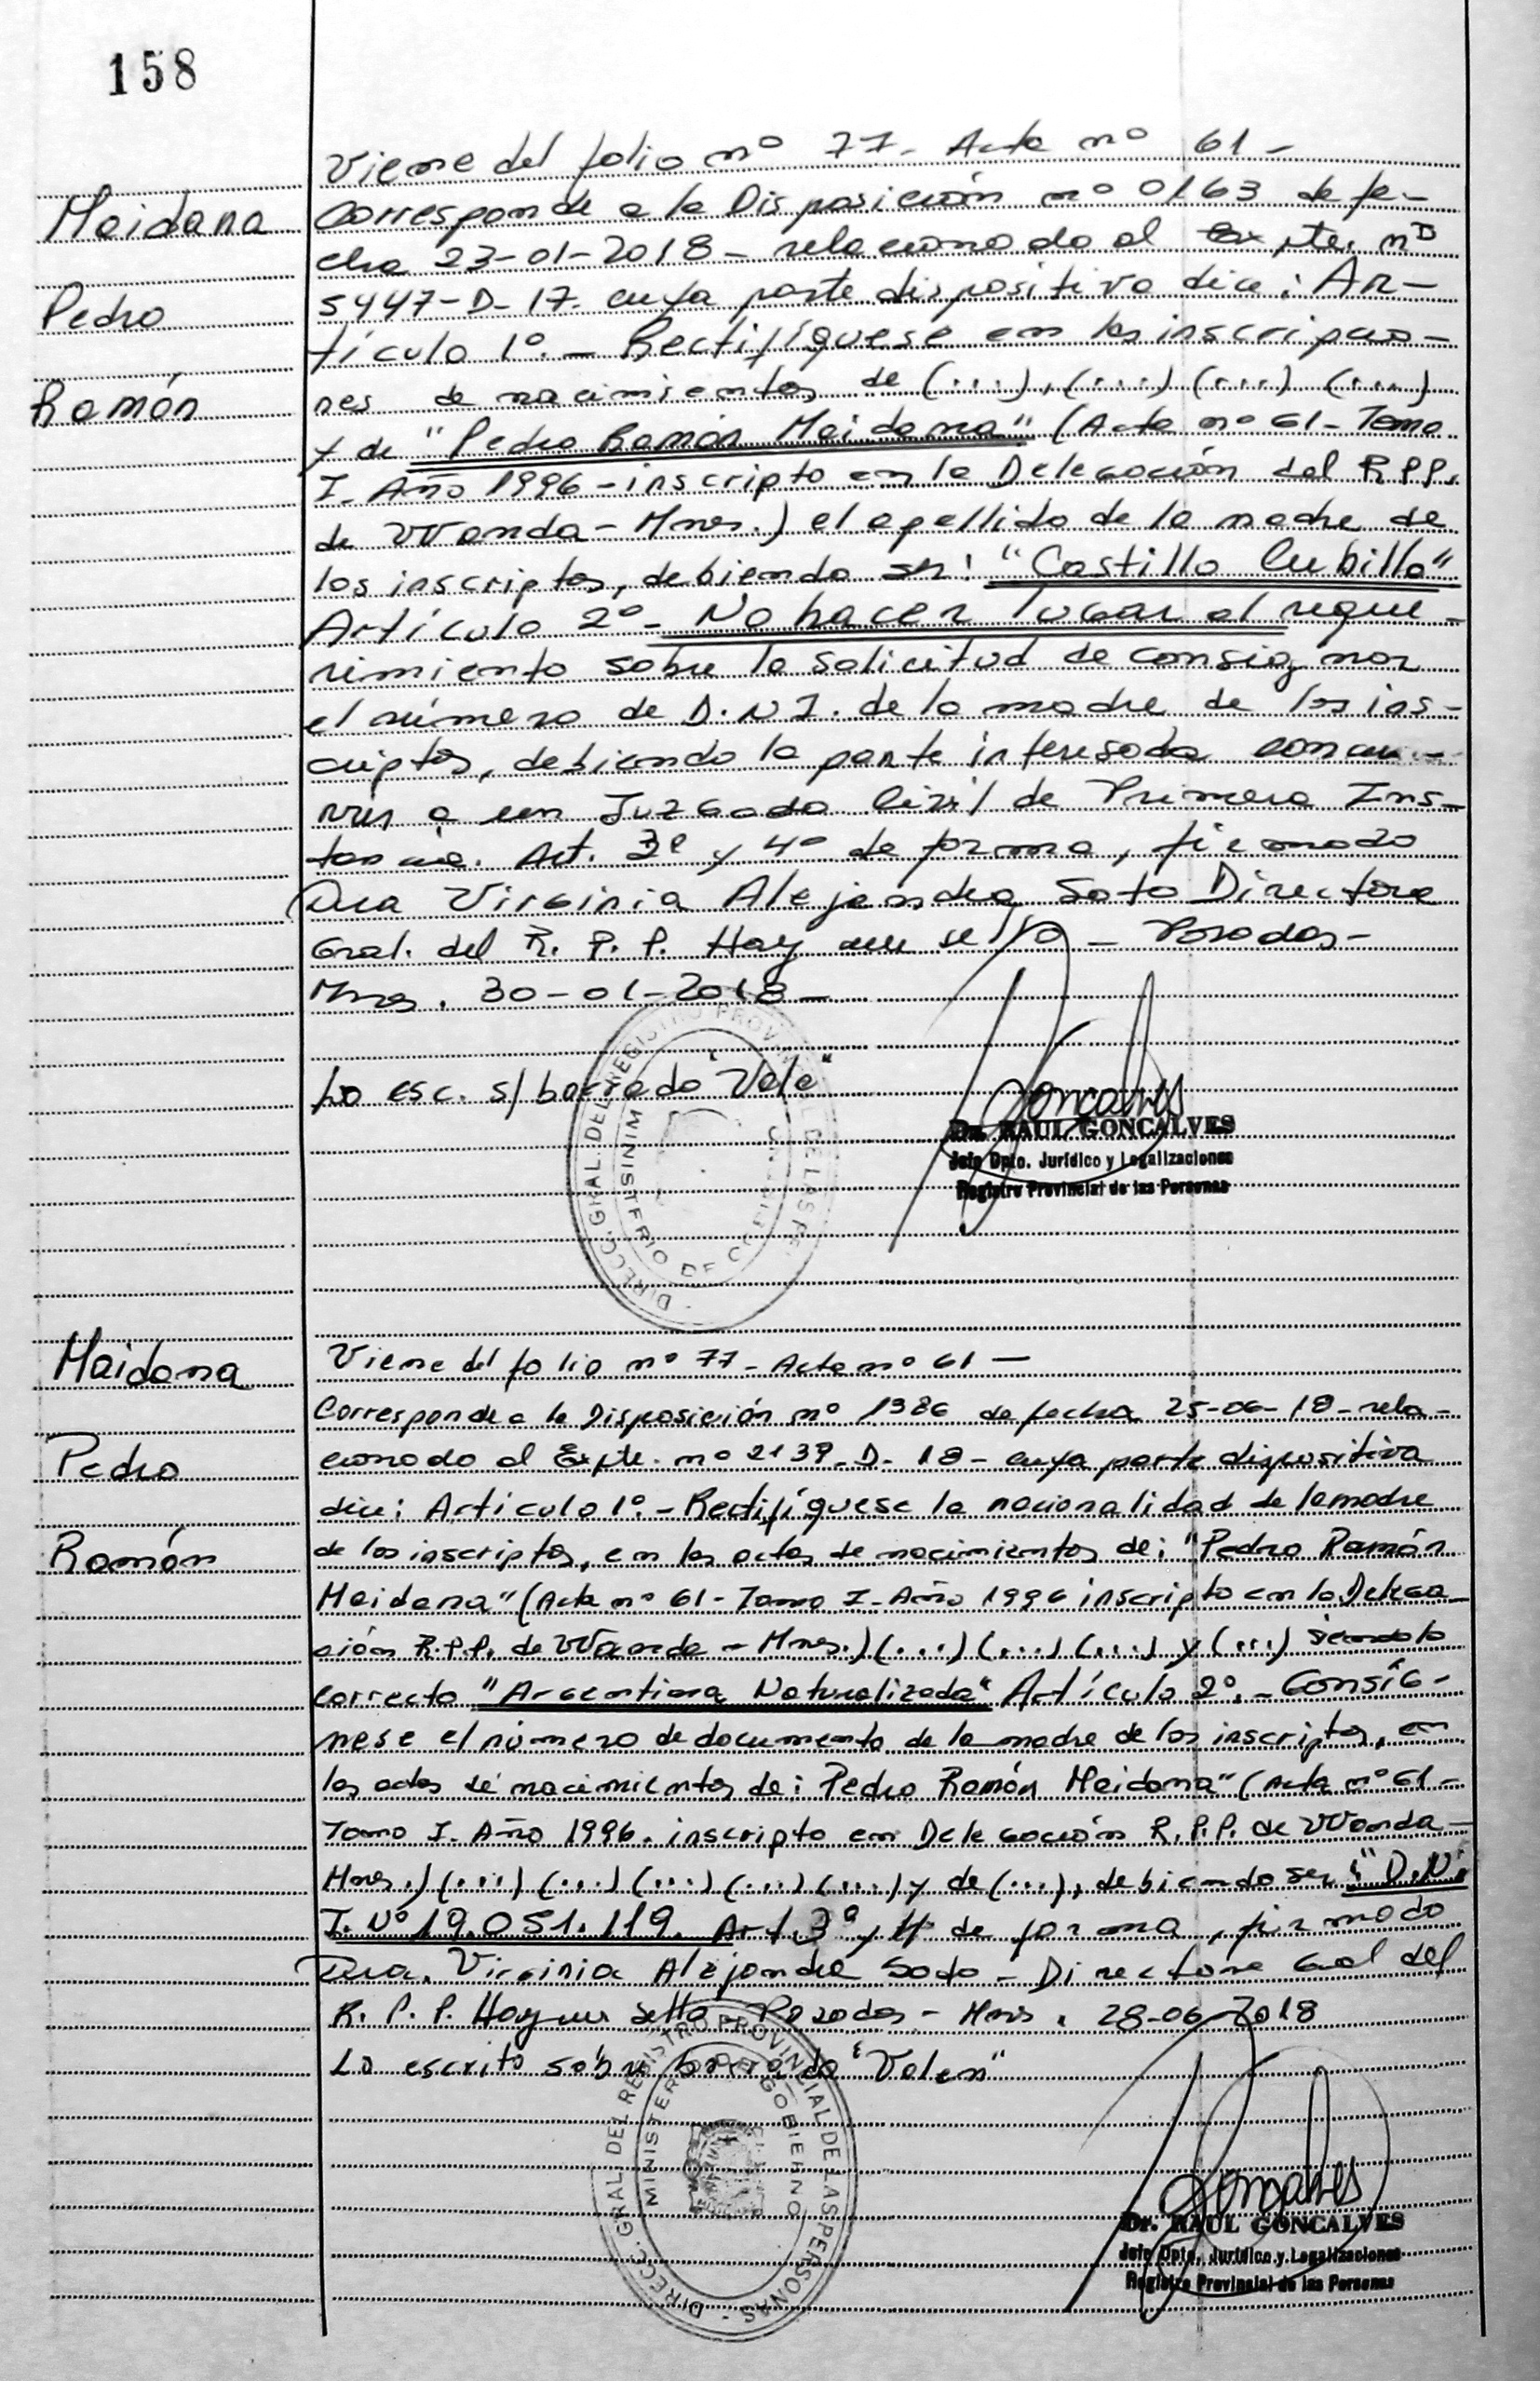 158
Viene del folio nº 77 - Acta nº 61 -
Maidana
Corresponde a la Disposición nº 0163 de fe-
cha 23-01-2018 - relacionado al Expte. nº
Pedro
5447-D-17. cuya parte dispositiva dice: Ar-
tículo 1º. - Rectifíquese en las inscripcio-
Ramón
nes de nacimientos de (...), (...) (...) (...)
y de "Pedro Ramón Maidana" (Acta nº 61 - Tomo
I. Año 1996 - inscripto en la Delegación del R.P.P.
de Wanda - Mnes.) el apellido de la madre de
los inscriptos, debiendo ser: "Castillo Cubilla"
Artículo 2º - No hacer lugar al reque-
rimiento sobre la solicitud de consignar
el número de D.N I. de la madre de los ins-
criptos, debiendo la parte interesada concu-
rrir a un Juzgado Civil de Primera Ins-
tancia. Art. 3º y 4º de forma, firmado
Dra Virginia Alejandra Soto Directora
Gral. del R. P. P. Hay un sello - Posadas -
Mnes. 30-01-2018 -
Lo esc. s/ borrado "Vale"
DIRECC. GRAL. DEL REGISTRO PROVINCIAL DE LAS PE
MINISTERIO DE GOBIERNO
Goncalves
Dr. RAUL GONCALVES
Jefe Dpto. Jurídico y Legalizaciones
Registro Provincial de las Personas
Viene del folio nº 77 - Acta nº 61 -
Maidana
Corresponde a la Disposición nº 1386 de fecha 25-06-18 - rela-
Pedro
cionado al Expte. nº 2139-D-18 - cuya parte dispositiva
dice: Artículo 1º. - Rectifíquese la nacionalidad de la madre
Ramón
de los inscriptos, en las actas de nacimientos de: "Pedro Ramón
Maidana" (Acta nº 61 - Tomo I - Año 1996 inscripto en la Delega-
ción R.P.P. de Wanda - Mnes.) (...) (...) (...) y (...) siendo lo
correcto "Argentina Naturalizada" Artículo 2º. - Consíg-
nese el número de documento de la madre de los inscriptos, en
las actas de nacimientos de: Pedro Ramón Maidana" (Acta nº 61 -
Tomo I. Año 1996. inscripto en Delegación R.P.P. de Wanda -
Mnes.) (...) (...) (...) (...) (...) y de (...), debiendo ser: "D.N.
I. Nº 19.051.119. Art 3º y 4º de forma, firmado
Dra. Virginia Alejandra Soto - Directora Gral del
R. P. P. Hay un sello - Posadas - Mnes. 28-06-2018
Lo escrito sobre borrado "Valen"
DIRECC. GRAL. DEL REGISTRO PROVINCIAL DE LAS PERSONAS -
MINISTERIO DE GOBIERNO
Goncalves
Dr. RAUL GONCALVES
Jefe Dpto. Jurídico y Legalizaciones
Registro Provincial de las Personas